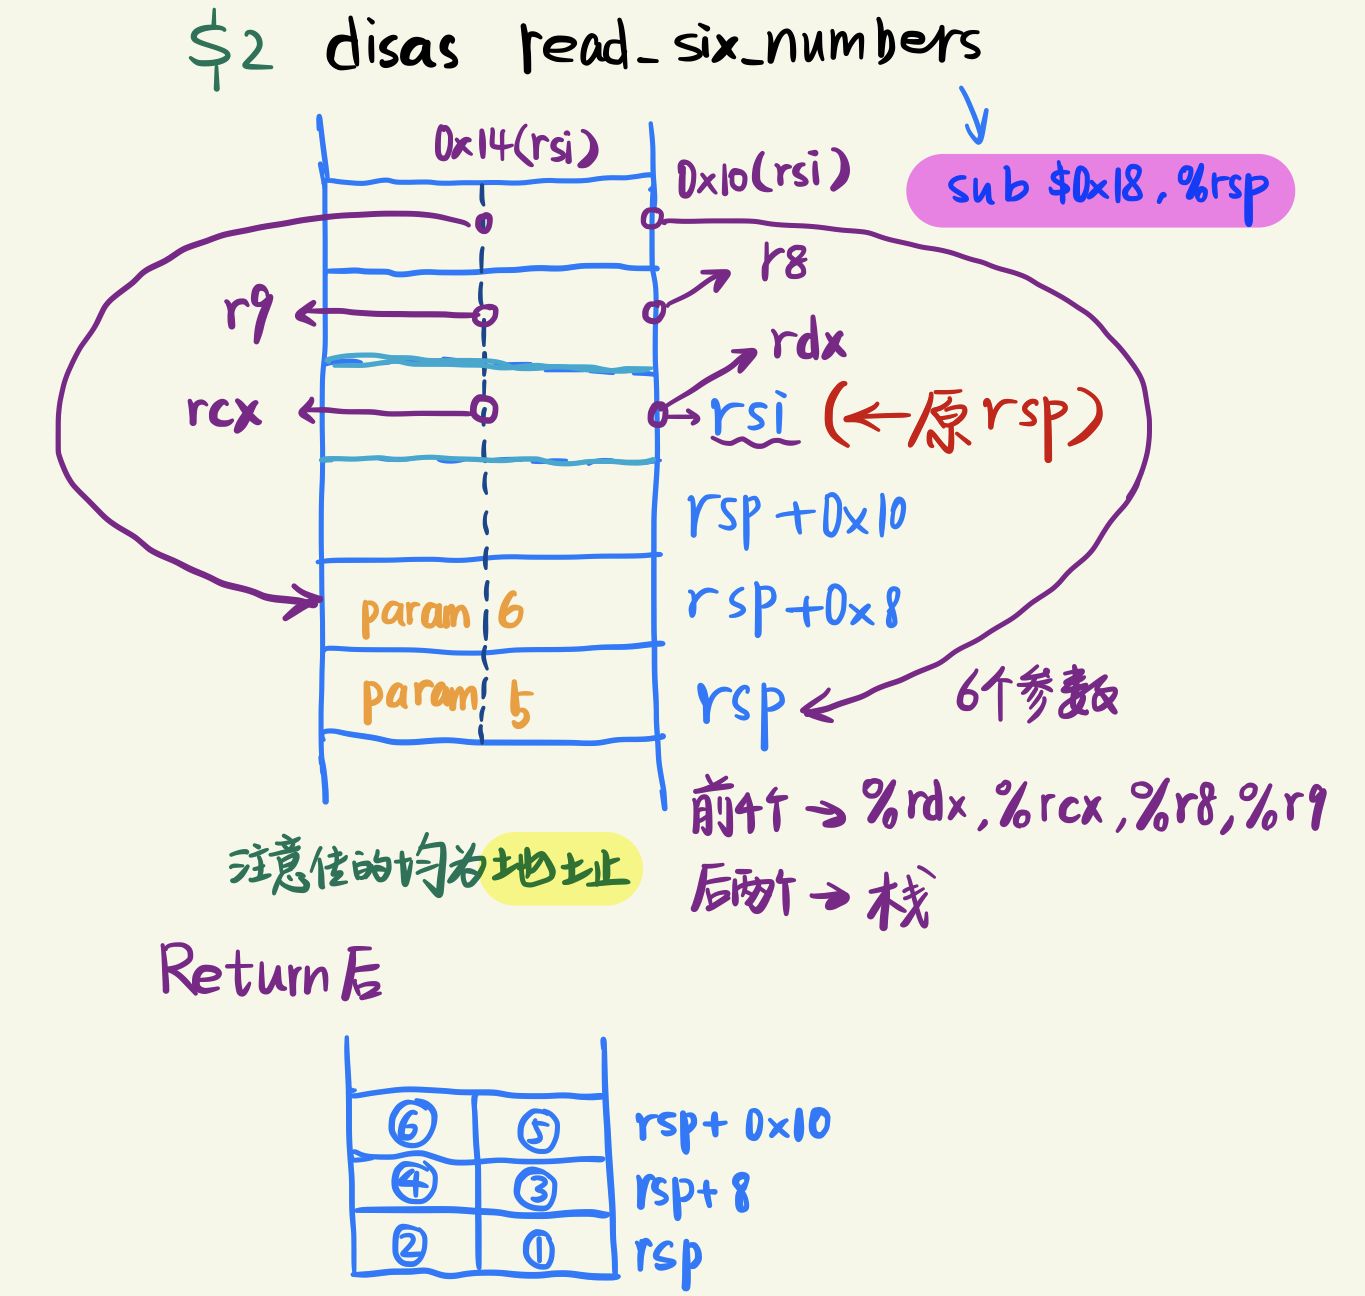 $2 disas read_six_numbers
0x14(rsi)
0x10(rsi)
sub $0x18, %rsp
r8
r9
rdx
rcx
rsi (←原rsp)
rsp+0x10
param 6
rsp+0x8
param 5
rsp
6个参数
前4个→%rdx,%rcx,%r8,%r9
后两个→栈
注意传的均为地址
Return后
⑥ ⑤ rsp+0x10
④ ③ rsp+8
② ① rsp